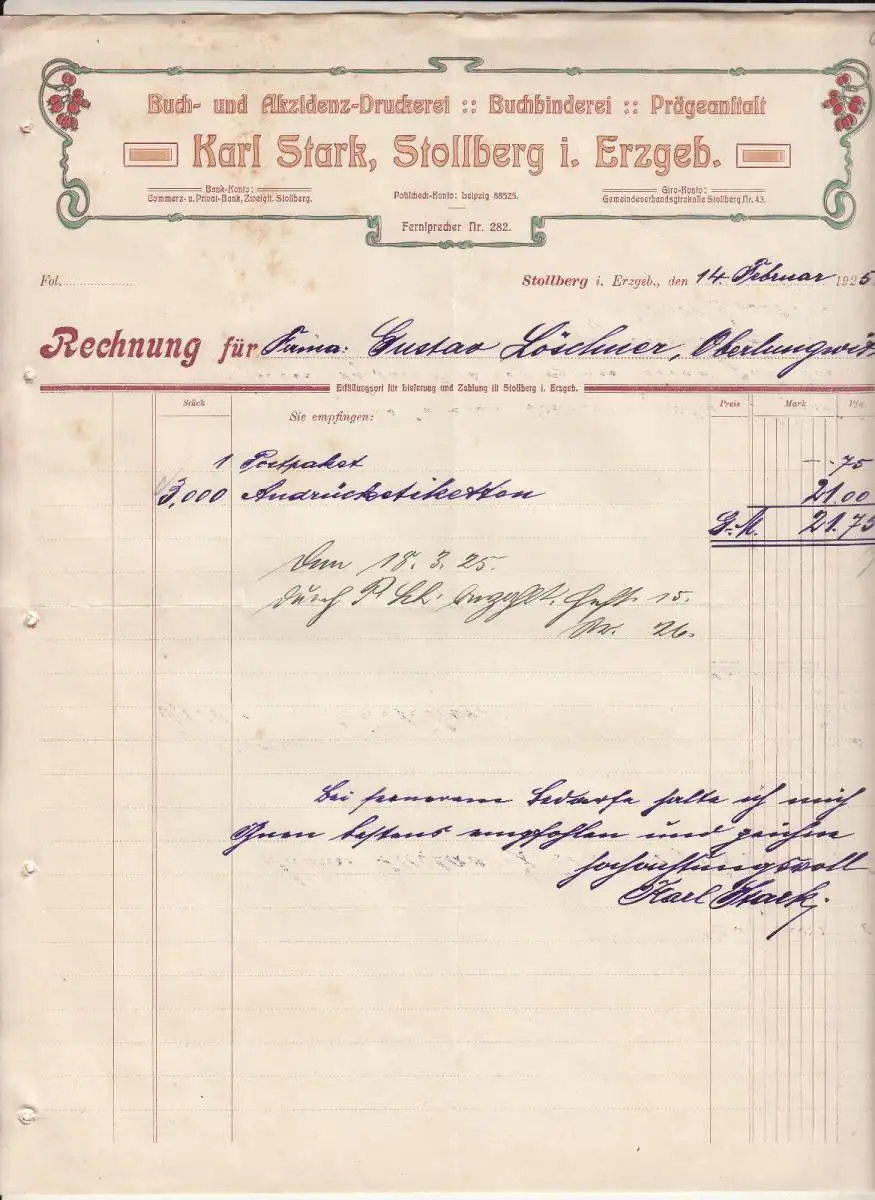 Buch- und Akzidenz-Druckerei :: Buchbinderei :: Prägeanstalt
Karl Stark, Stollberg i. Erzgeb.
Bank-Konto:
Commerz- u. Privat-Bank, Zweigst. Stollberg.
Postscheck-Konto: Leipzig 88525.
Giro-Konto:
Gemeindeverbandsgirokasse Stollberg Nr. 43.
Fernsprecher Nr. 282.
Fol.
Stollberg i. Erzgeb., den 14. Februar 1925.
Rechnung für Firma: Gustav Löschner, Oberlungwitz
Erfüllungsort für Lieferung und Zahlung ist Stollberg i. Erzgeb.
Stück Sie empfingen: Preis Mark Pfg.
1 Postpaket -.75
3,000 Andrücketiketten 21.00
G.-M. 21.75
Den 18. 3. 25.
durch P. Sch. 15.
Nr. 26.
Bei fernerem Bedarfe halte ich mich
Ihnen bestens empfohlen und zeichne
hochachtungsvoll
Karl Stark.